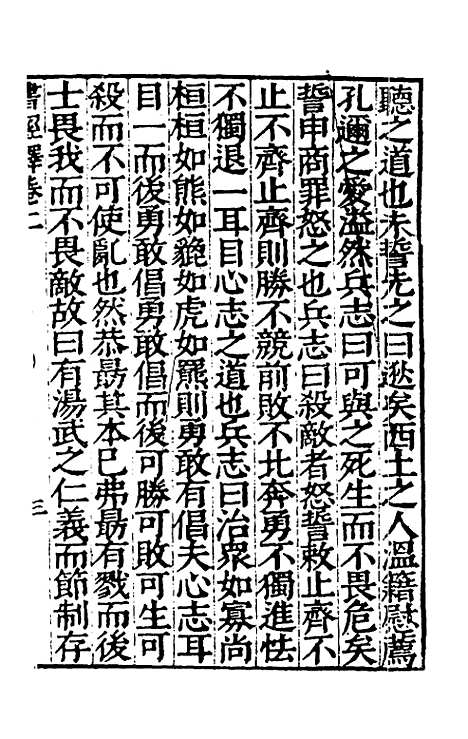 聽之道也未誓先之曰逖矣西土之人溫籍慰薦
孔邇之愛溢然兵志曰可與之死生而不畏危矣
誓申商罪怒之也兵志曰殺敵者怒誓敕止齊不
止不齊止齊則勝不競前敗不比奔勇不獨進怯
不獨退一耳目心志之道也兵志曰治眾如寡尚
桓桓如熊如貔如虎如羆則勇敢有倡夫心志耳
目一而後勇敢倡勇敢倡而後可勝可敗可生可
殺而不可使亂也然恭勗其本已弗勗有戮而後
士畏我而不畏敵故曰有湯武之仁義而節制存
書經繹卷二
三